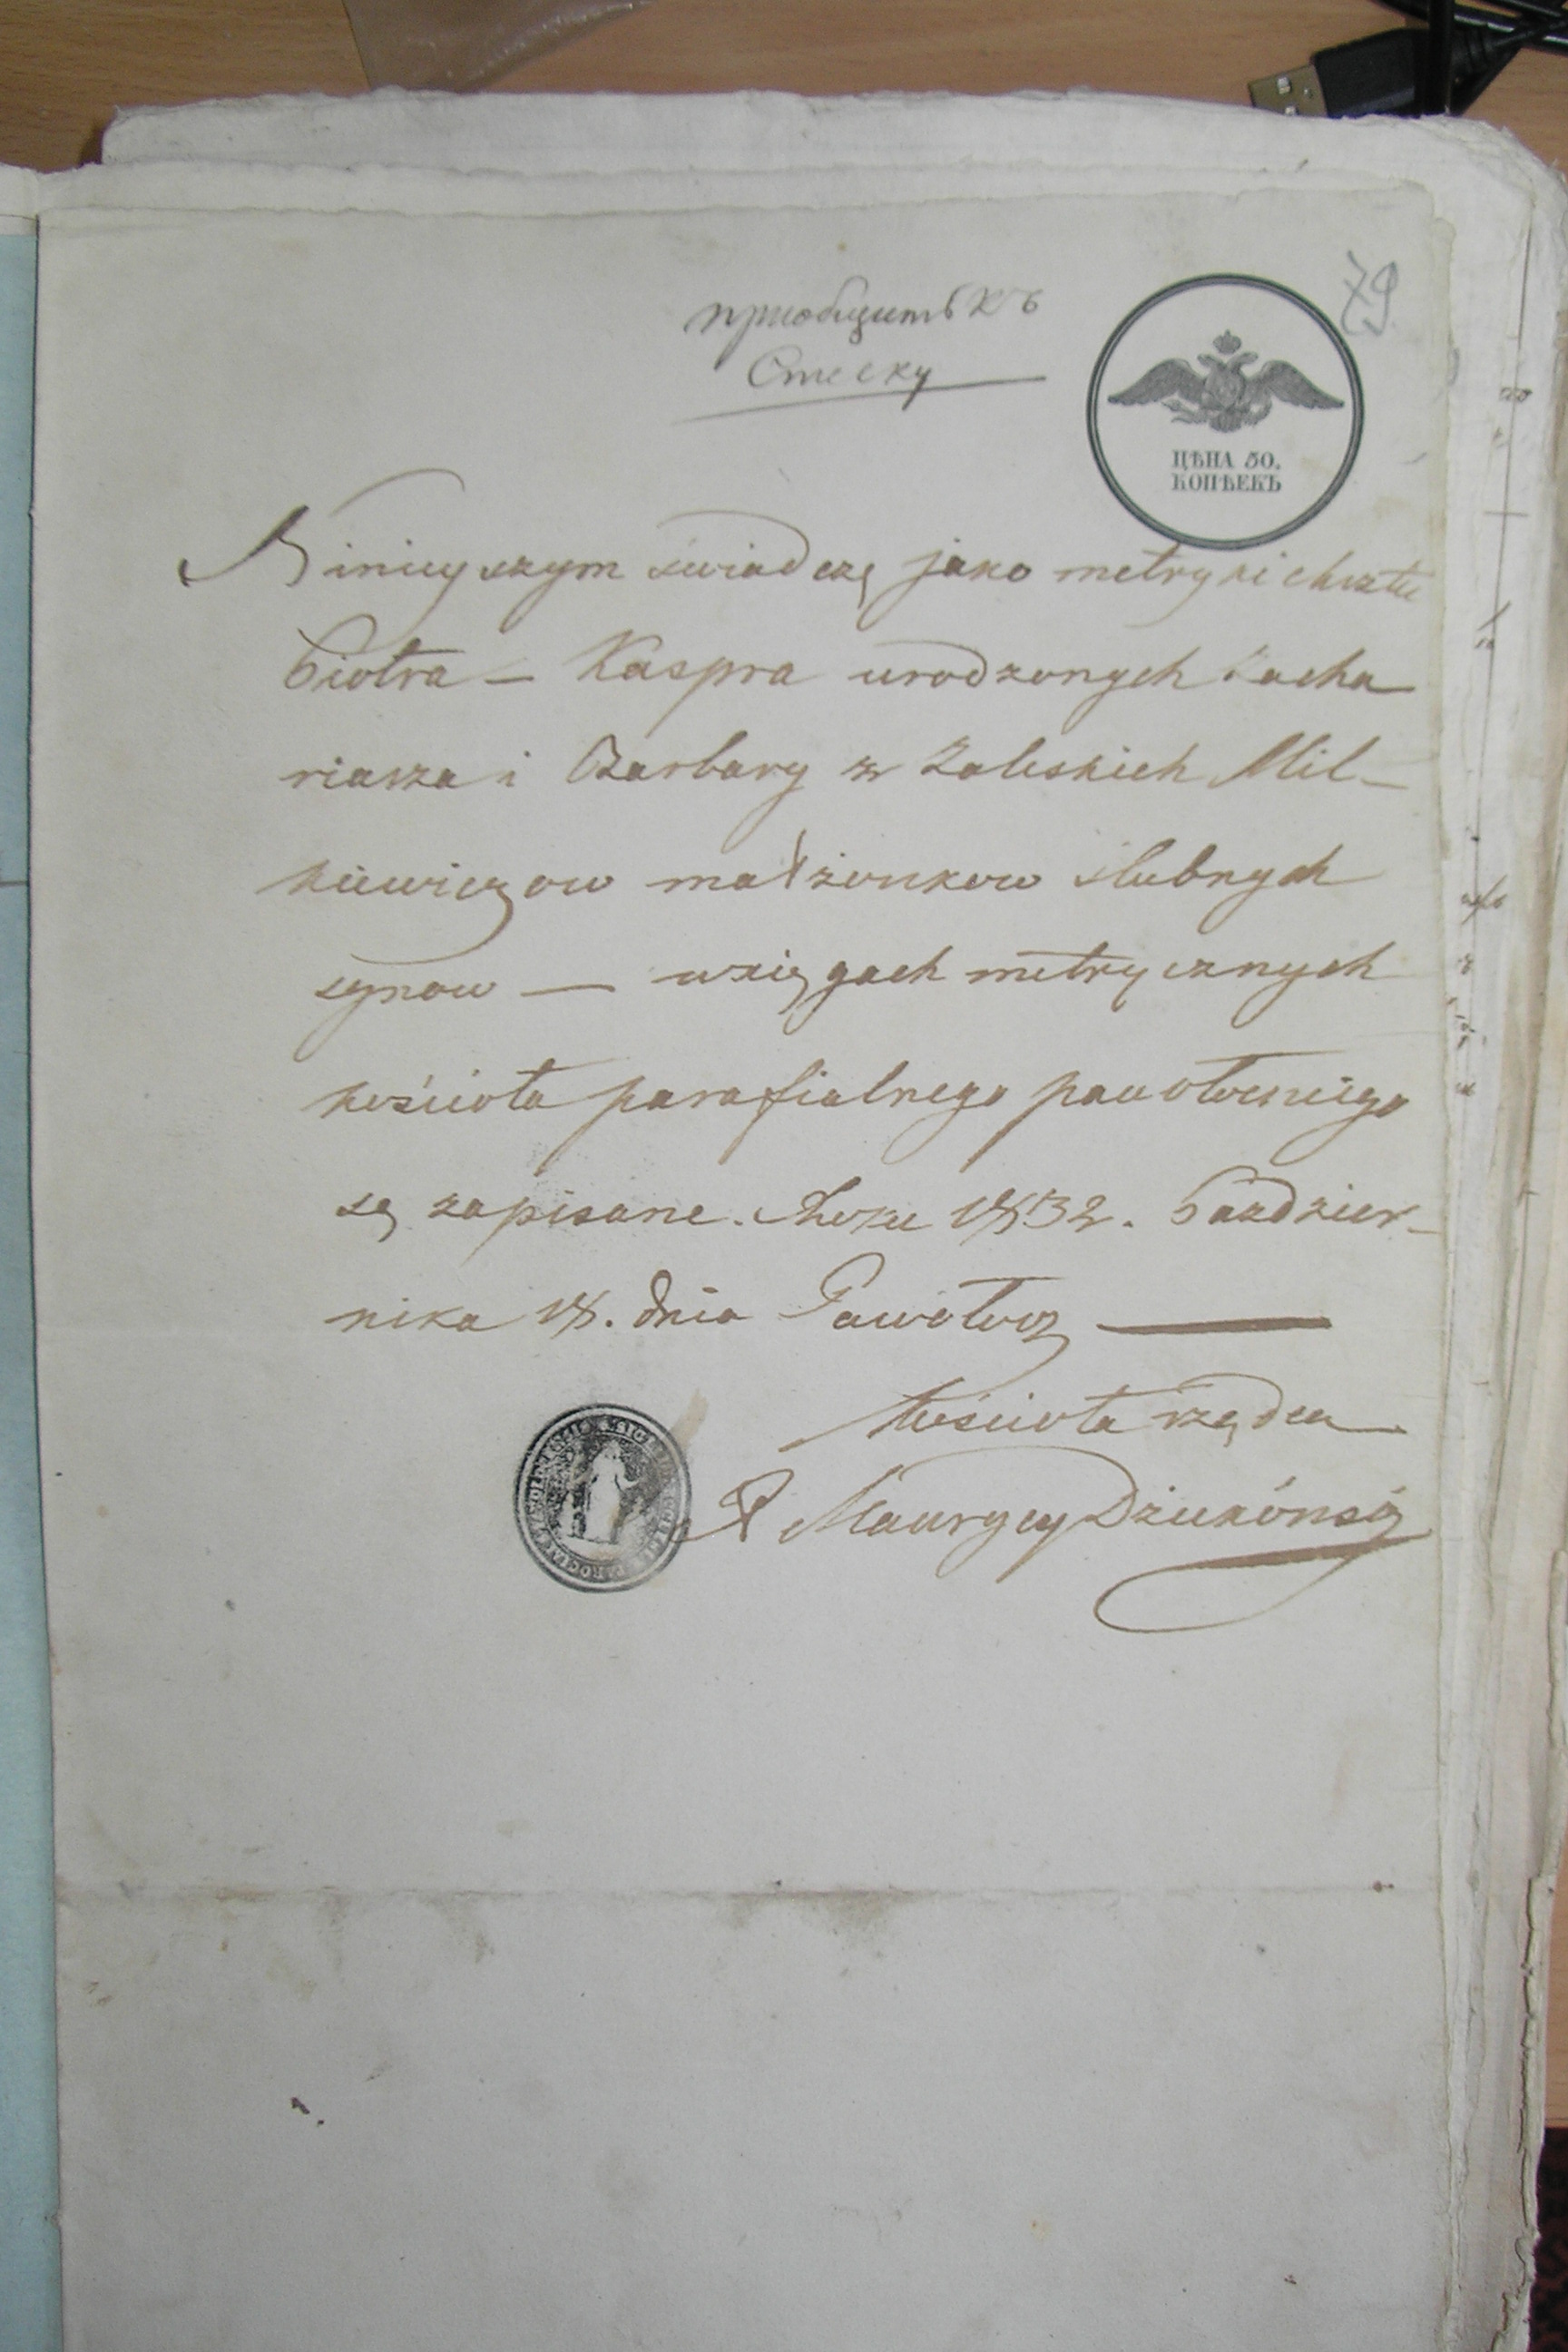 79
приобщить къ
Списку
ЦѢНА 50.
КОПѢЕКЪ
Ninieyszym świadczę jako metryki chrztu
Piotra — Kaspra urodzonych Zacha
riasza i Barbary z Zaleskich Mil-
kiewiczow małżonkow ślubnych
synow — w xięgach metrycznych
kościoła parafialnego pawołockiego
są zapisane. Roku 1832. Paździer-
nika 18. dnia Pawołocz —
Kościoła rządca
X Maurycy